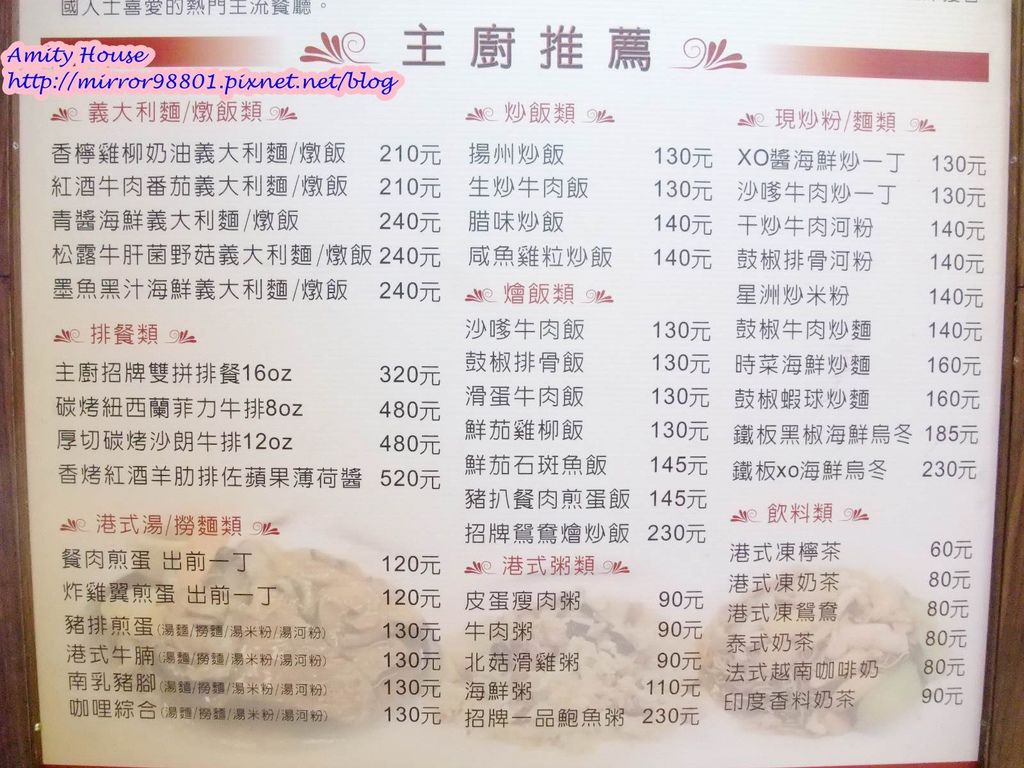 國人士喜愛的熱門主流餐廳。
Amity House
http://mirror98801.pixnet.net/blog
主廚推薦
義大利麵/燉飯類
香檸雞柳奶油義大利麵/燉飯 210元
紅酒牛肉番茄義大利麵/燉飯 210元
青醬海鮮義大利麵/燉飯 240元
松露牛肝菌野菇義大利麵/燉飯 240元
墨魚黑汁海鮮義大利麵/燉飯 240元
排餐類
主廚招牌雙拼排餐16oz 320元
碳烤紐西蘭菲力牛排8oz 480元
厚切碳烤沙朗牛排12oz 480元
香烤紅酒羊肋排佐蘋果薄荷醬 520元
港式湯/撈麵類
餐肉煎蛋 出前一丁 120元
炸雞翼煎蛋 出前一丁 120元
豬排煎蛋(湯麵/撈麵/湯米粉/湯河粉) 130元
港式牛腩(湯麵/撈麵/湯米粉/湯河粉) 130元
南乳豬腳(湯麵/撈麵/湯米粉/湯河粉) 130元
咖哩綜合(湯麵/撈麵/湯米粉/湯河粉) 130元
炒飯類
揚州炒飯 130元
生炒牛肉飯 130元
腊味炒飯 140元
咸魚雞粒炒飯 140元
燴飯類
沙嗲牛肉飯 130元
鼓椒排骨飯 130元
滑蛋牛肉飯 130元
鮮茄雞柳飯 130元
鮮茄石斑魚飯 145元
豬扒餐肉煎蛋飯 145元
招牌鴛鴦燴炒飯 230元
港式粥類
皮蛋瘦肉粥 90元
牛肉粥 90元
北菇滑雞粥 90元
海鮮粥 110元
招牌一品鮑魚粥 230元
現炒粉/麵類
XO醬海鮮炒一丁 130元
沙嗲牛肉炒一丁 130元
干炒牛肉河粉 140元
鼓椒排骨河粉 140元
星洲炒米粉 140元
鼓椒牛肉炒麵 140元
時菜海鮮炒麵 160元
鼓椒蝦球炒麵 160元
鐵板黑椒海鮮烏冬 185元
鐵板xo海鮮烏冬 230元
飲料類
港式凍檸茶 60元
港式凍奶茶 80元
港式凍鴛鴦 80元
泰式奶茶 80元
法式越南咖啡奶 80元
印度香料奶茶 90元